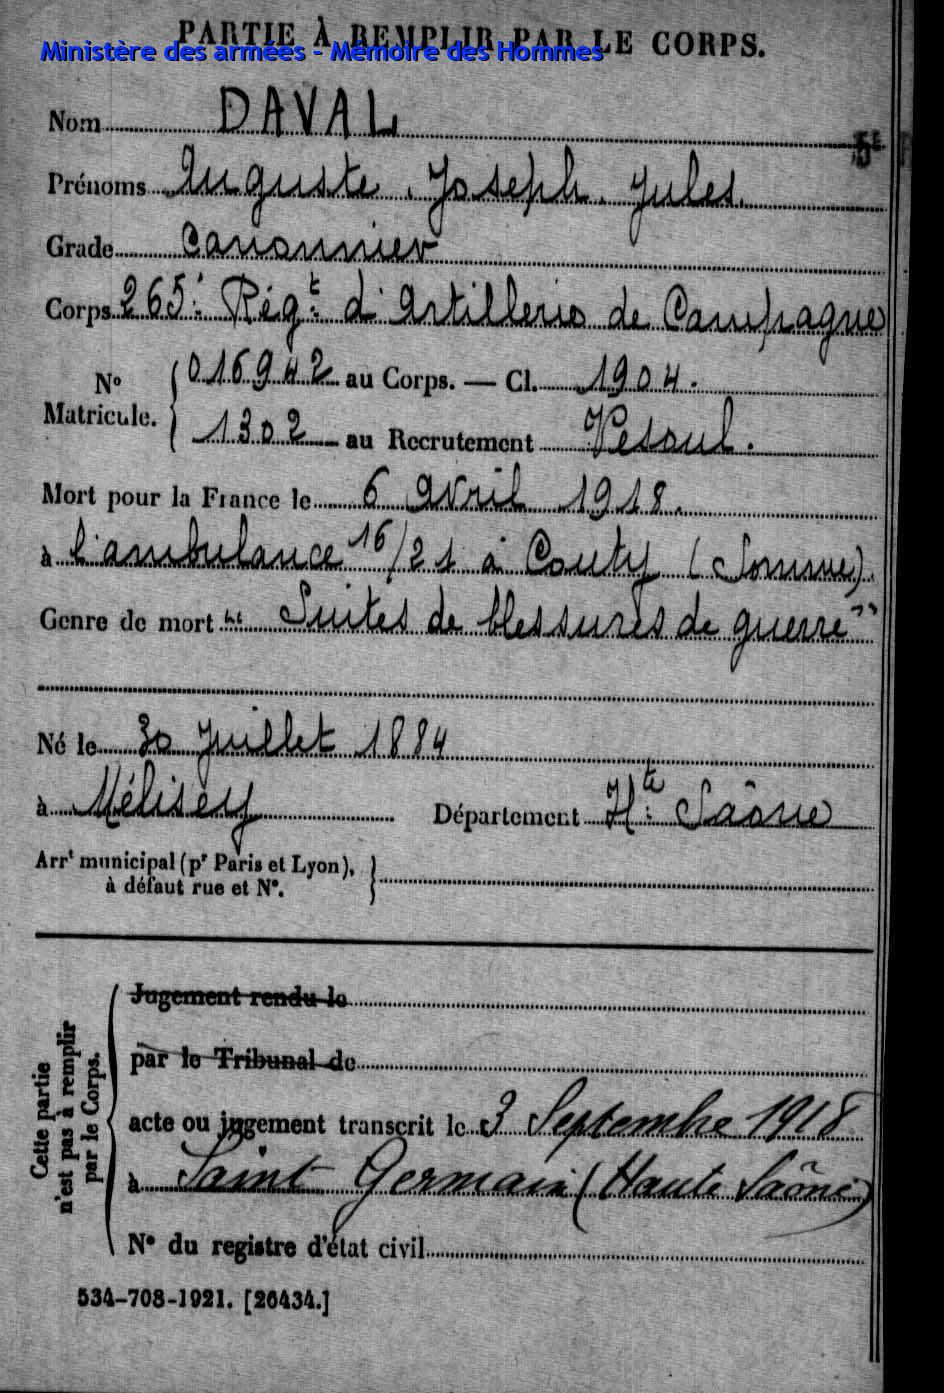 PARTIE À REMPLIR PAR LE CORPS.
Ministère des armées - Mémoire des Hommes
Nom DAVAL
5e
Prénoms Auguste. Joseph. Jules.
Grade Canonnier
Corps 265e Régt d'Artillerie de Campagne
No Matricule. { 016942 au Corps. — Cl. 1904.
1302 au Recrutement Vesoul.
Mort pour la France le 6 Avril 1918.
à l'ambulance 16/21 à Conty (Somme).
Genre de mort "Suites de blessures de guerre"
Né le 30 Juillet 1884
à Mélisey Département Hte Saône
Arrt municipal (pr Paris et Lyon), à défaut rue et No. }
Cette partie n'est pas à remplir par le Corps.
Jugement rendu le
par le Tribunal de
acte ou jugement transcrit le 3 Septembre 1918
à Saint Germain (Haute Saône)
No du registre d'état civil
534-708-1921. [26434.]